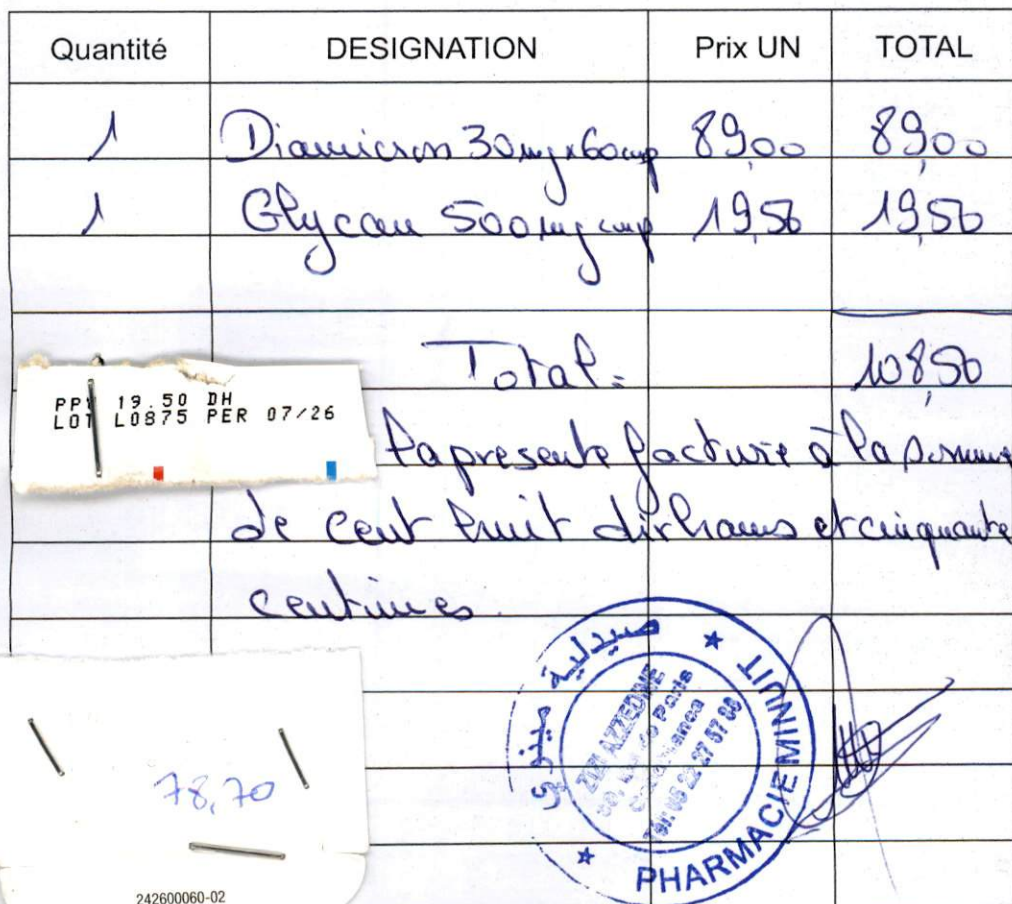 Quantité DESIGNATION Prix UN TOTAL
1 Diamicron 30mg x 60cmp 89,00 89,00
1 Glycan 500mg cmp 19,50 19,50
Total = 108,50
PPV 19.50 DH
LOT L0875 PER 07/26
la presente facture à la somme
de cent huit dirhams et cinquante
centimes.
صيدلية مينوي
PHARMACIE MINUIT
AZZEDINE
de Paris
Casablanca
78,70
242600060-02